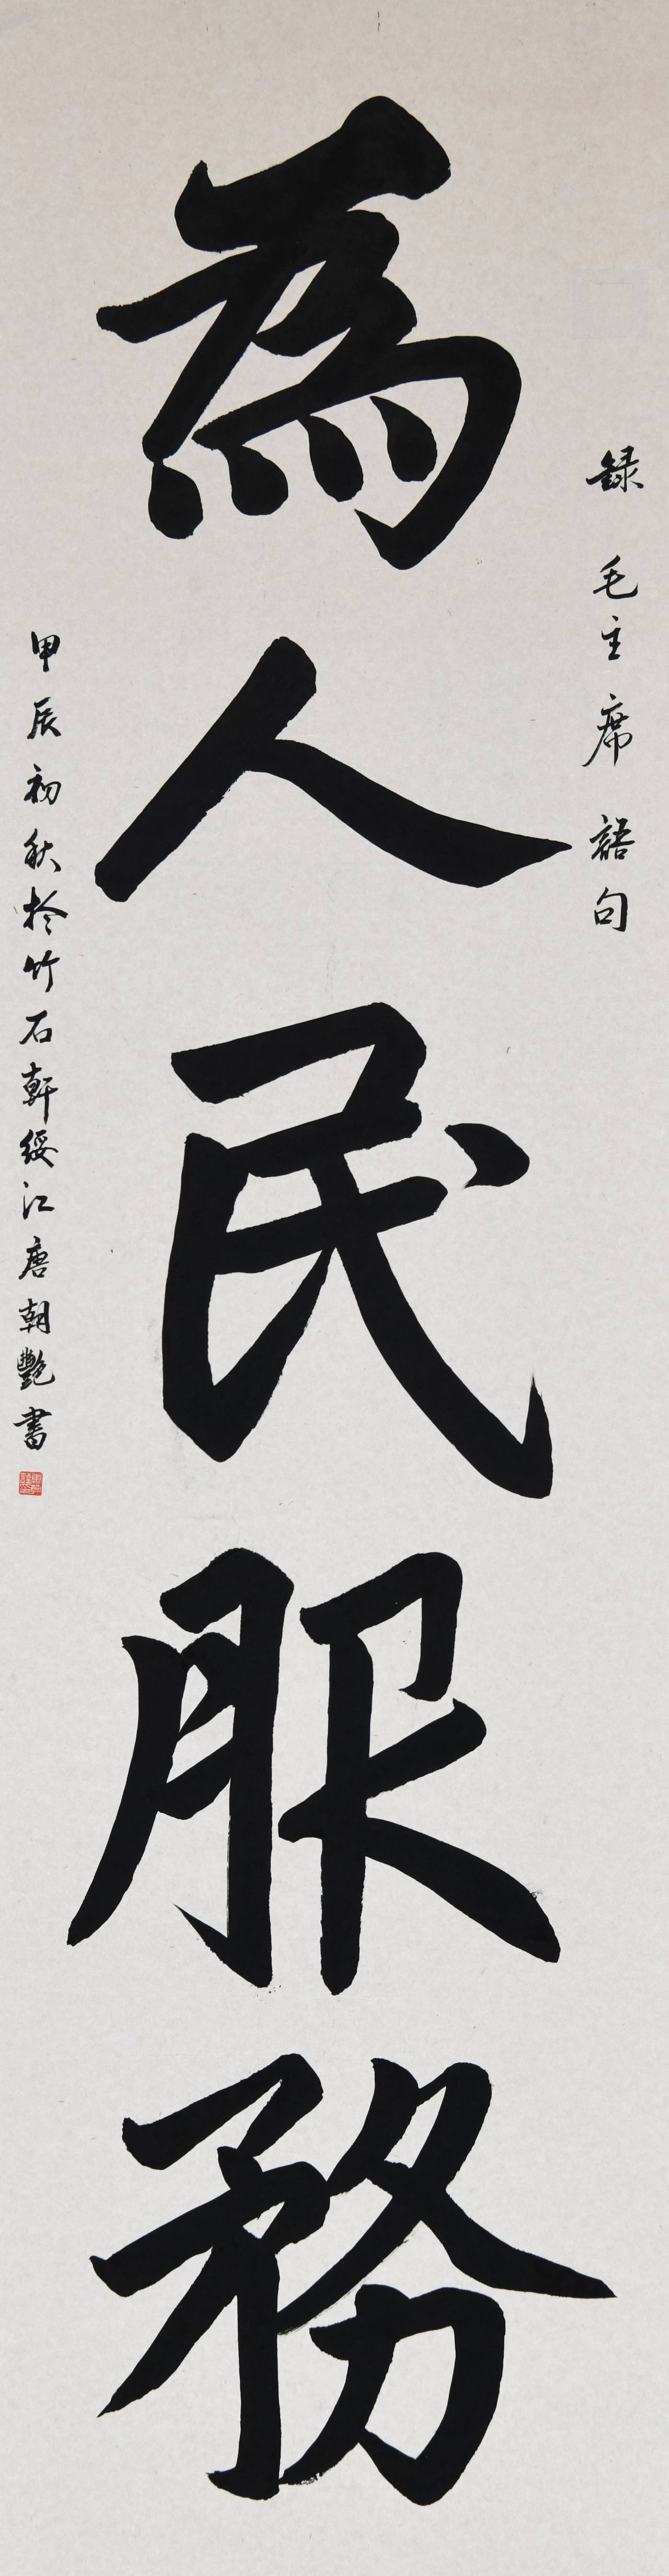 録毛主席語句
為人民服務
甲辰初秋於竹石軒綏江唐朝艷書